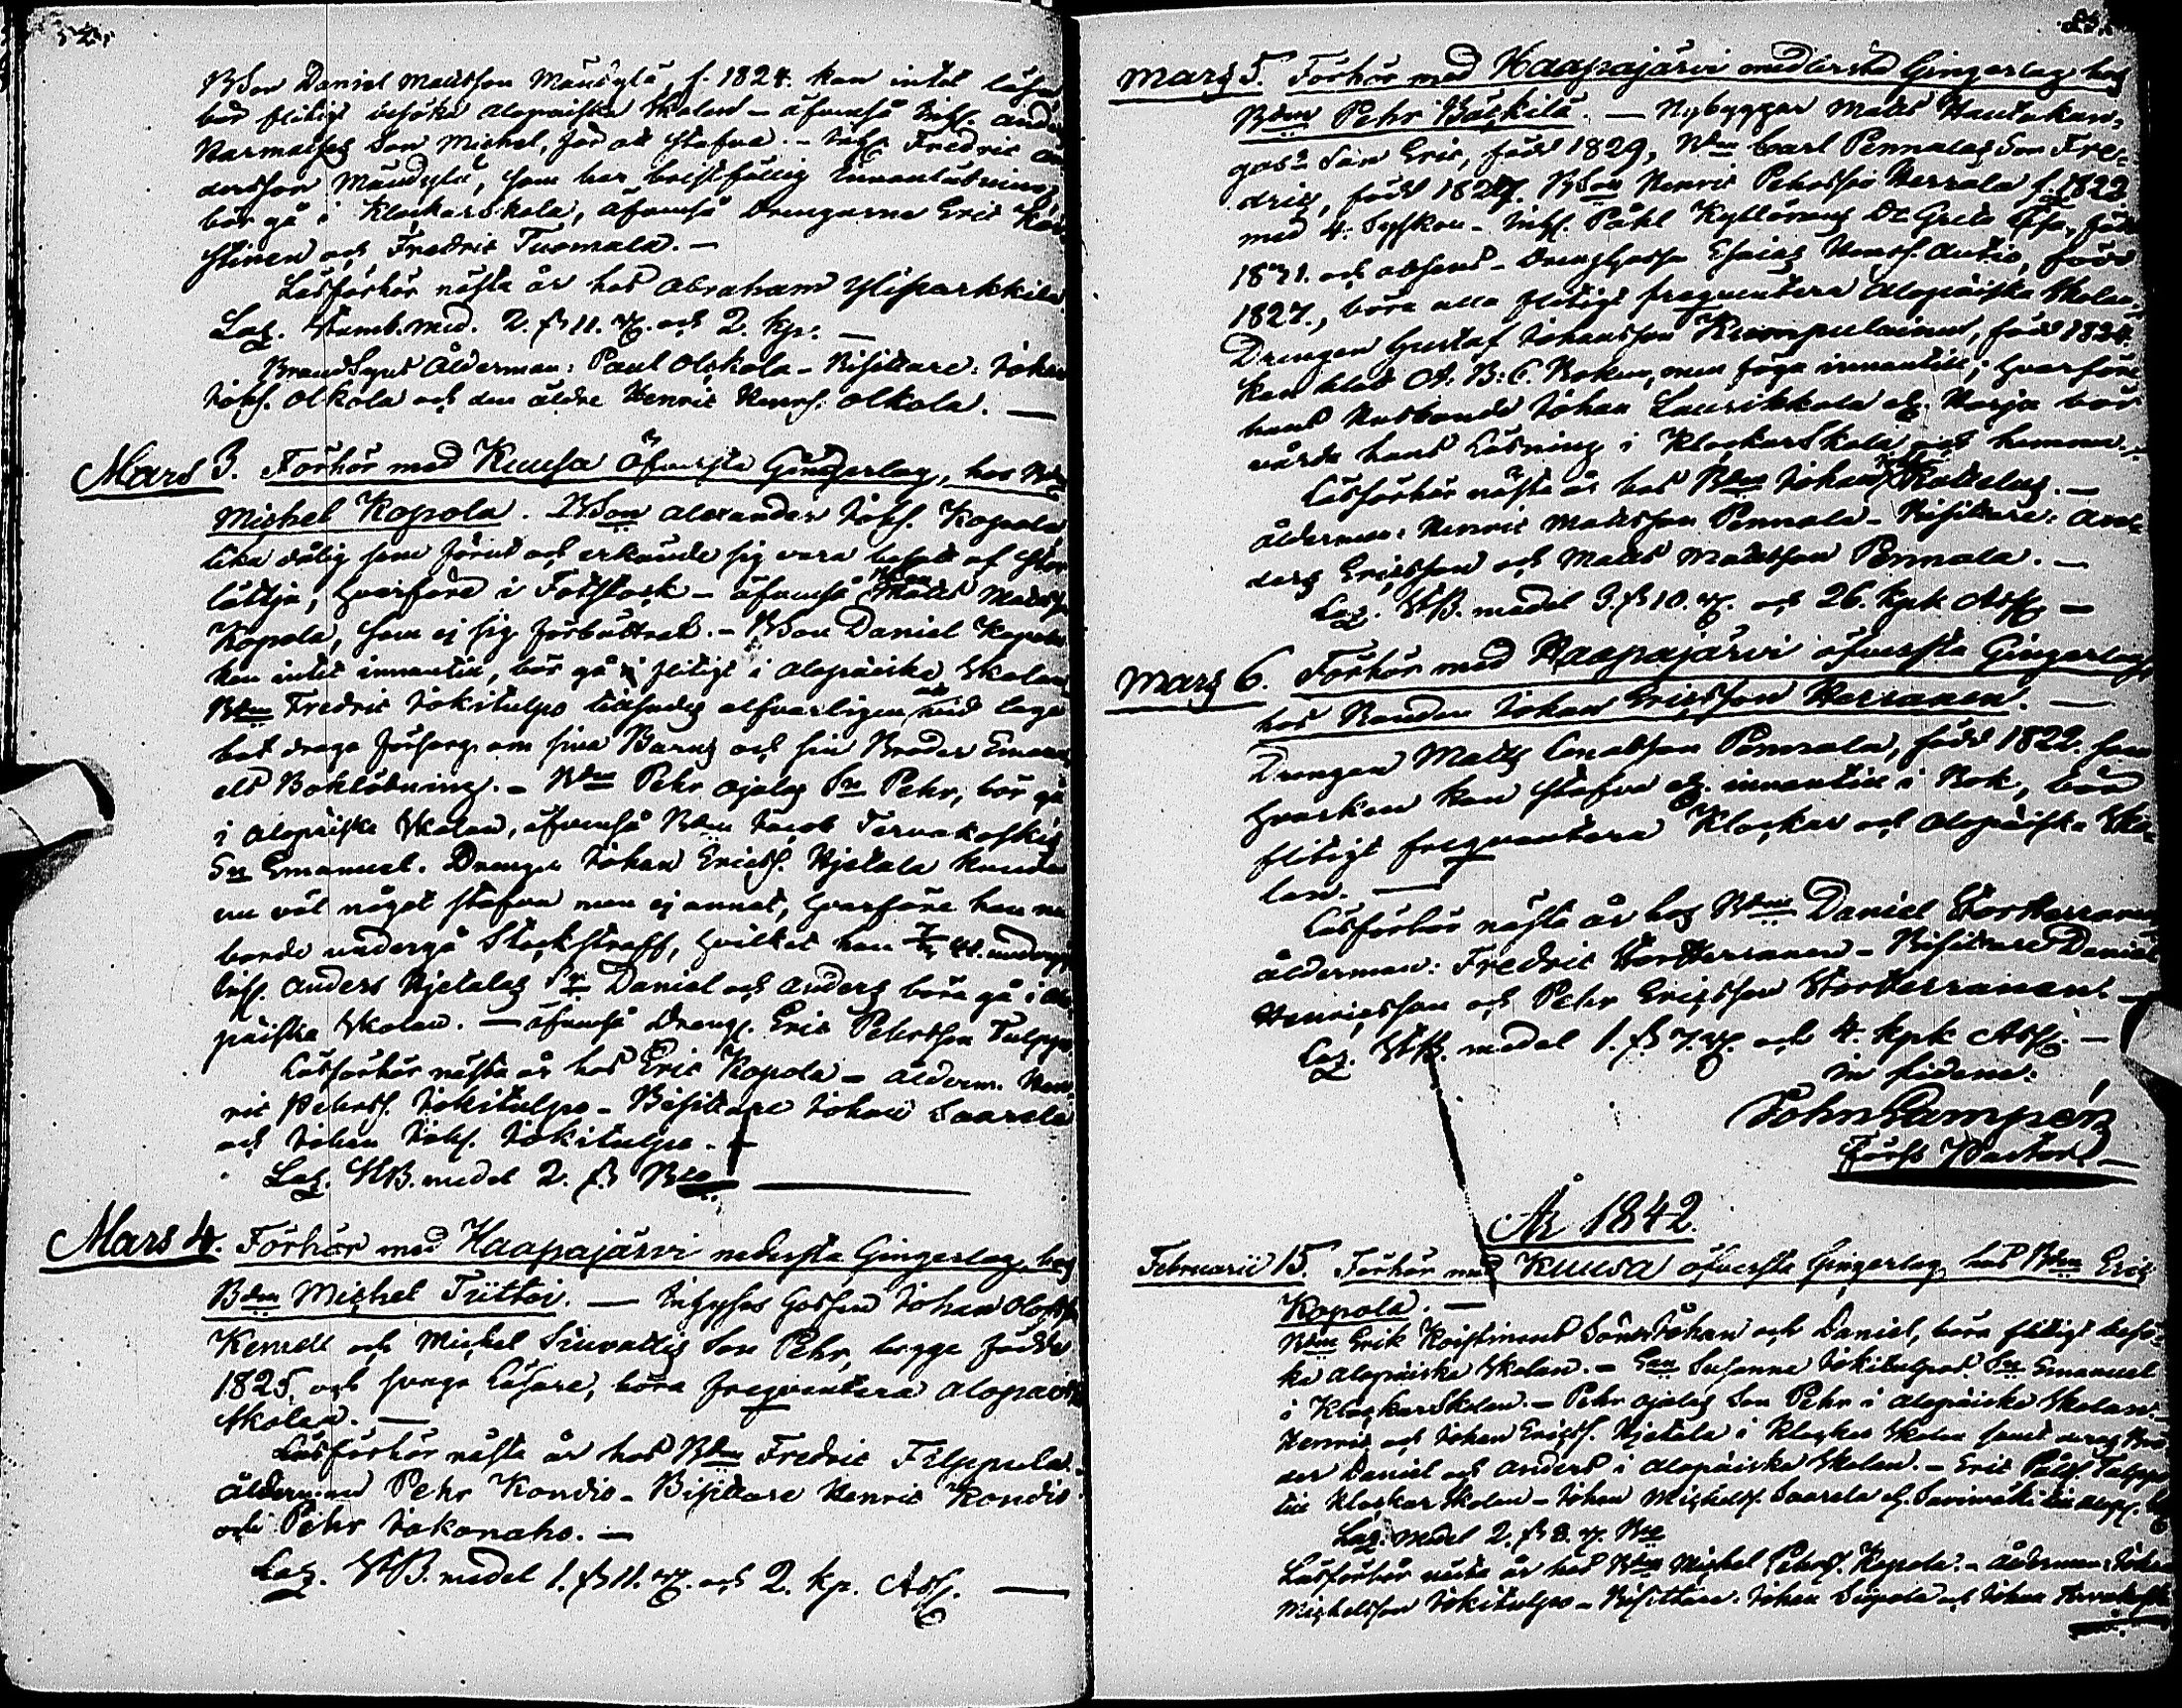 52.
BSon Daniel Mattsson Mändylä, f. 1824. kan intet läsa
bör flitigt besöka Alopaiska Skolan – äfvenså Inhs. And
Karmalas Son Michel, för at stafva. – Inhs. Fredric An
dersson Mändylä, som har bristfällig Innanläsning,
bör gå i Klockarskola, äfvenså Drengarne Eric Koi
stinen och Fredric Tuomala. –
Läsförhör nästa år hos Abraham Yliparkkila
Laz. Stamb. med. 2. 11. och 2. kp. –
BrandSyns Ålderman: Paul Olkola – Bisittare: Johan
Johs. Olkola och den äldre Henric Henrs. Olkola. –
Mars 3. Förhör med Kuusa öfversta Gingerlag, hos Bdn
Michel Kopola. BSon Alexander Johs. Kopola,
lika dålig som förut och erkände sig vara besatt af stor
lättja, hvarföre i Fotstock – äfvenså BSon Matts Matss
Kopola, som ej sig förbättrat. – BSon Daniel Kopola
kan intet innantill, bör gå flitigt i Alopaiska Skolan
Bdn Fredric Jokitulpo tillsades alfvarligen at vid laga
bot draga försorg om sina Barns och sin Broder Emanu
els Bokläsning. – Bdn Pehr Ojalas Sn Pehr, bör gå
i Alopaiska Skolan, äfvenså Bdn Jacob Tervakoskis
Sn Emanuel. Drengen Johan Ericss. Hjetala kunde
nu väl något stafva men ej annat, hvarföre han nu
borde undergå Stockstraff, hvilket han undergå
Inhs. Anders Hjetalas Sr Daniel och Anders böra gå i Alo
paiska Skolan. – äfvenså Drengs. Eric Pehrsson Tulppo
Läsförhör nästa år hos Eric Kopola –Ålderm. Hen
ric Pehrss. Jokitulpo – Bisittare Johan Saarela
och Johan Johs. Jokitulpo. –
Laz. StB. medel 2. Bco
Mars 4. Förhör med Haapajärvi nedersta Gingerlag, hos
Bdn Michel Tiittoi. – Inhyses Gossen Johan Olofss
Kemell och Michel Siuvattis Son Pehr, begge födde
1825, och svaga Läsare, böra freqventera Alopaiska
Skolan. –
Läsförhör nästa år hos Bdn Fredric Filppula.
Åldermn Pehr Kondio – Bisittare Henric Kondio
och Pehr Jokonaho. –
Laz. StB. medel 1. 11. och 2. kp. Ass. –
Mars 5. Förhör med Haapajärvi medlersta Gingerlag hos
Bdn Pehr Bäckilä. – Nybyggar Matts Hautakan-
gas Son Eric, född 1829, Bdn Carl Pennalas Son Fre-
dric, född 1827. BSon Henric Pehrsson Herrala f. 1822
med 4. Syskon – Inhs. Påhl Kyllönens Dr Greta Lisa, född
1831. och absent – Drenggossen Esaias Henrs. Autio, född
1827., böra alla flitigt freqventera Alopaiska Skolan.
Drengen Gustaf Johansson Kumpulainen, född 1824.
kan blott A: B: C. Boken, men föga innantill; hvarföre
hans Husbonde Johan Laurikkala el. Harja bör
vårda hans Läsning i KlockarSkola och hemma. –
Läsförhör nästa år hos Bdn Johan Kattelus. –
Ålderman: Henric Mattsson Pennala – Bisittare: An-
ders Ericsson och Matts Mattsson Pennala. –
Laz. StB. medel 3. 10. och 26. kpk Ass. –
Mars 6. Förhör med Haapajärvi öfversta Gingerlag,
hos Bonden Johan Ericsson Herranen. –
Drengen Matts Mattsson Pennala, född 1822. som
hvarken kan stafva el. innantill i Bok, bör
flitigt freqventera Klockar och Alopaiska Sko-
lan. –
Läsförhör nästa år hos Bdn Daniel StorHerranen
Ålderman: Fredric StorHerranen – Bisittare Daniel
Henricsson och Pehr Ericsson StorHerranen. –
Laz. StB. medel 1. 7. och 4. kpk Ass. –
in fidem:
John Lampén
Förste Pastor. –
År 1842.
Februarii 15. Förhör med Kuusa öfversta Gingerlag hos Bdn Eric
Kopola. –
Bdn Erik Koistinens Söner Johan och Daniel, böra flitigt besö-
ka Alopaiska Skolan. – Enn Susanna Jokitulpos Sn Emanuel
i KlockarSkolan. – Pehr Ojalas Son Pehr i Alopaiska Skolan.
Henric och Johan Ericss. Hjetala i Klockar Skolan samt deras Brö
der Daniel och Anders i Alopaiska Skolan. – Eric Pålss. Tulppo
till Klockar Skolan – Johan Michelss. Saarela el. Savimäki till Alop.
Laz. medel 2. 8. Bco
Läsförhör nästa år hos Bdn Michel Pehrss. Kopola. – Ålderman: Johan
Michelsson Jokitulpo – Bisittare: Johan Siipola och Johan Tervakoski